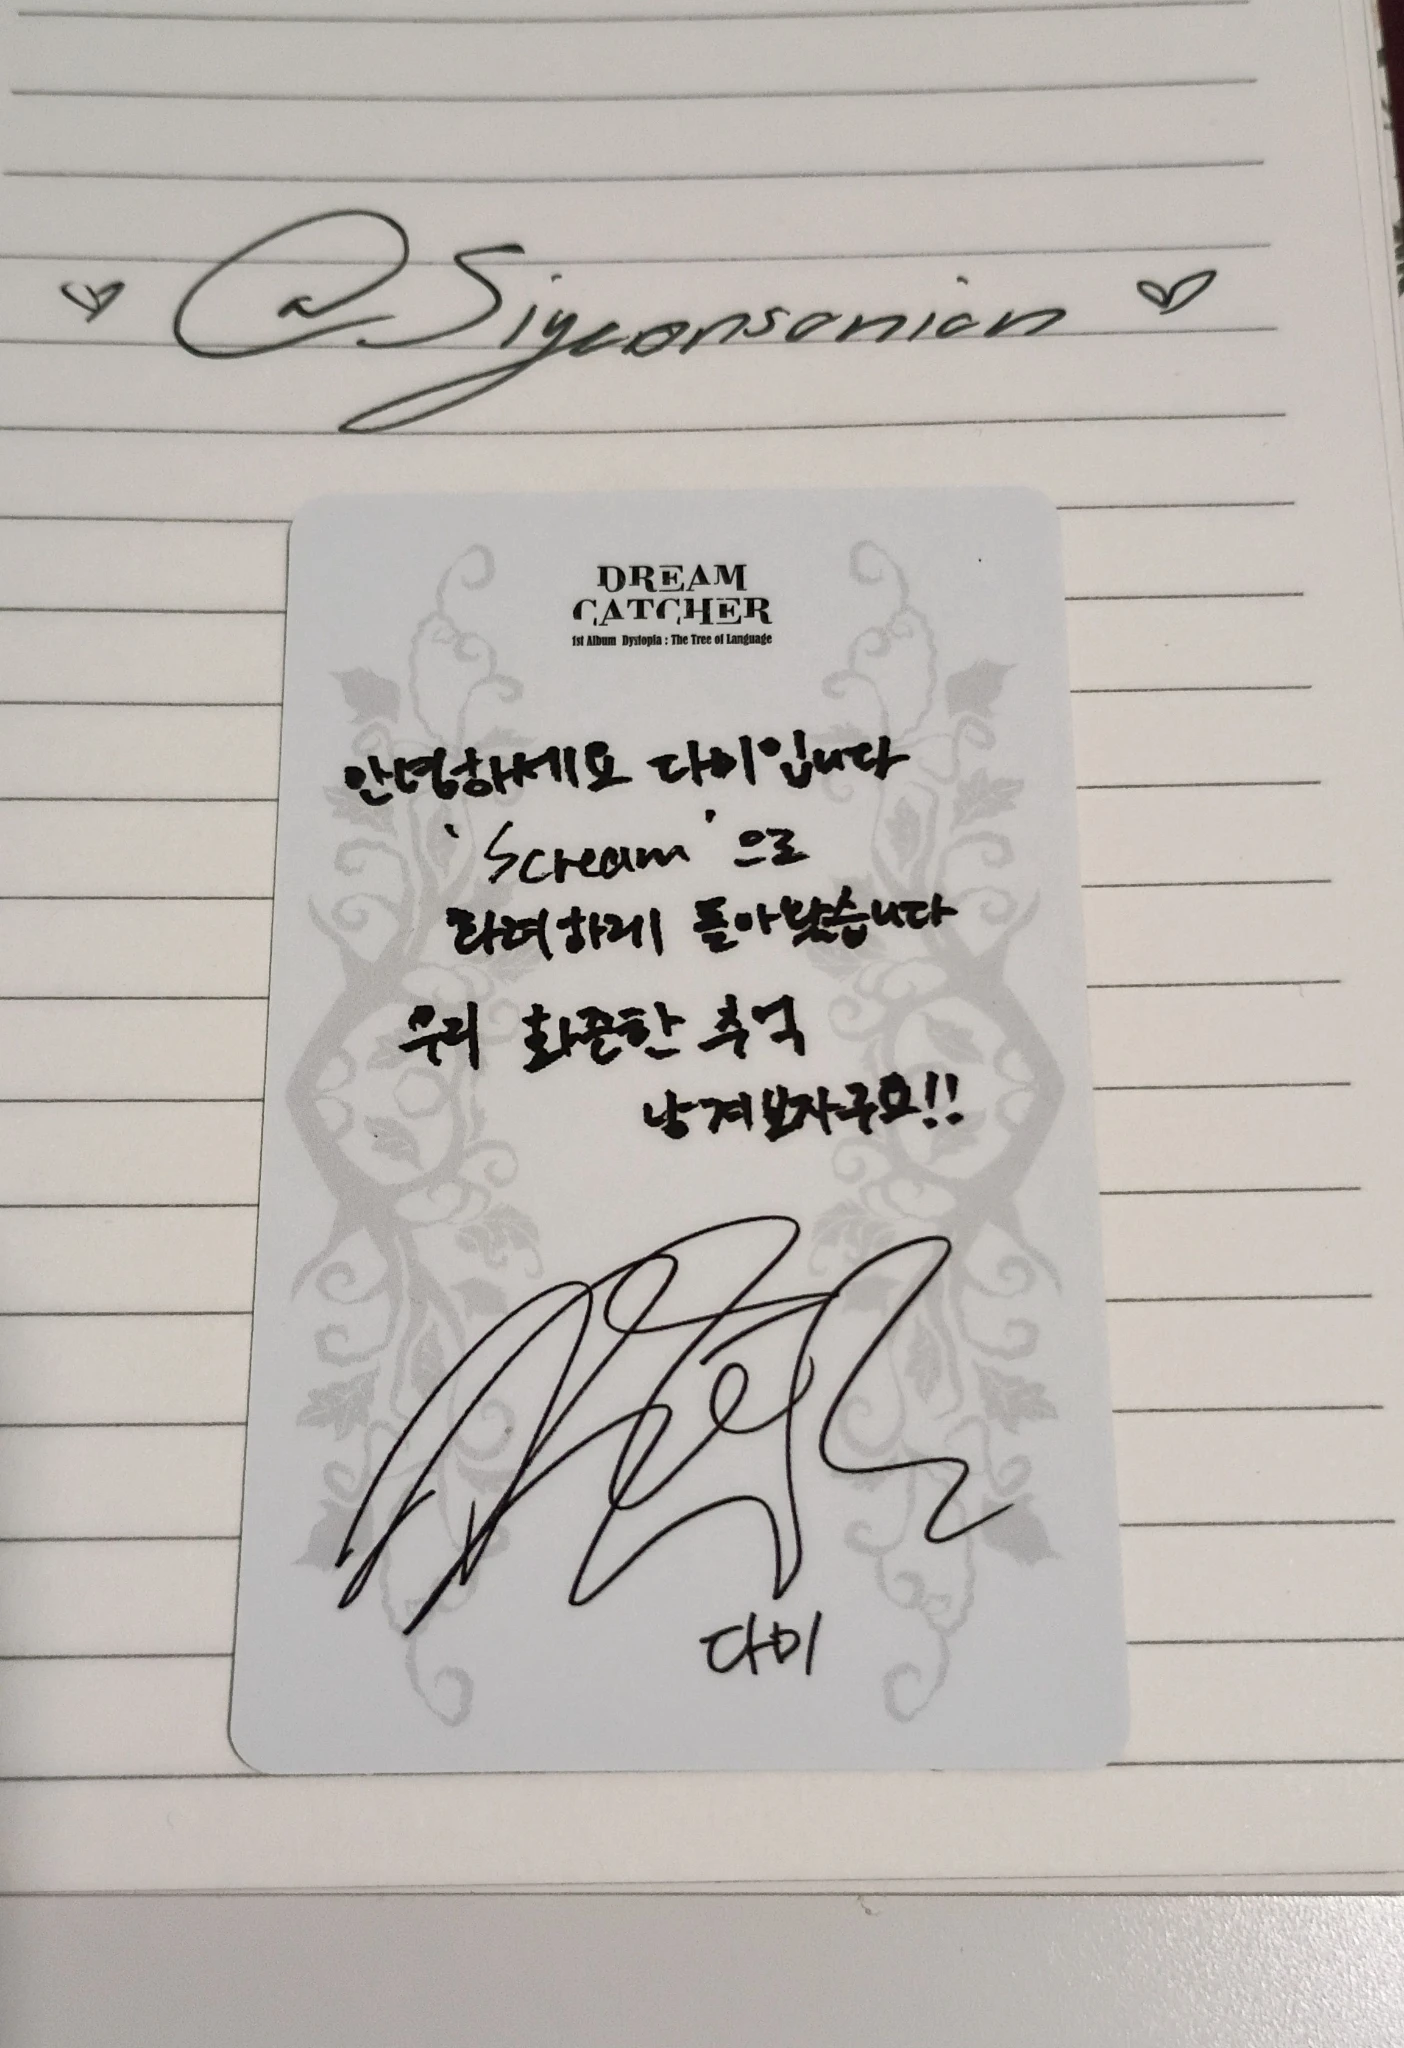 @Siyeonsanian
DREAM
CATCHER
1st Album Dystopia : The Tree of Language
안녕하세요 다미입니다
'Scream'으로
화려하게 돌아왔습니다
우리 화끈한 추억
남겨보자구요!!
다미